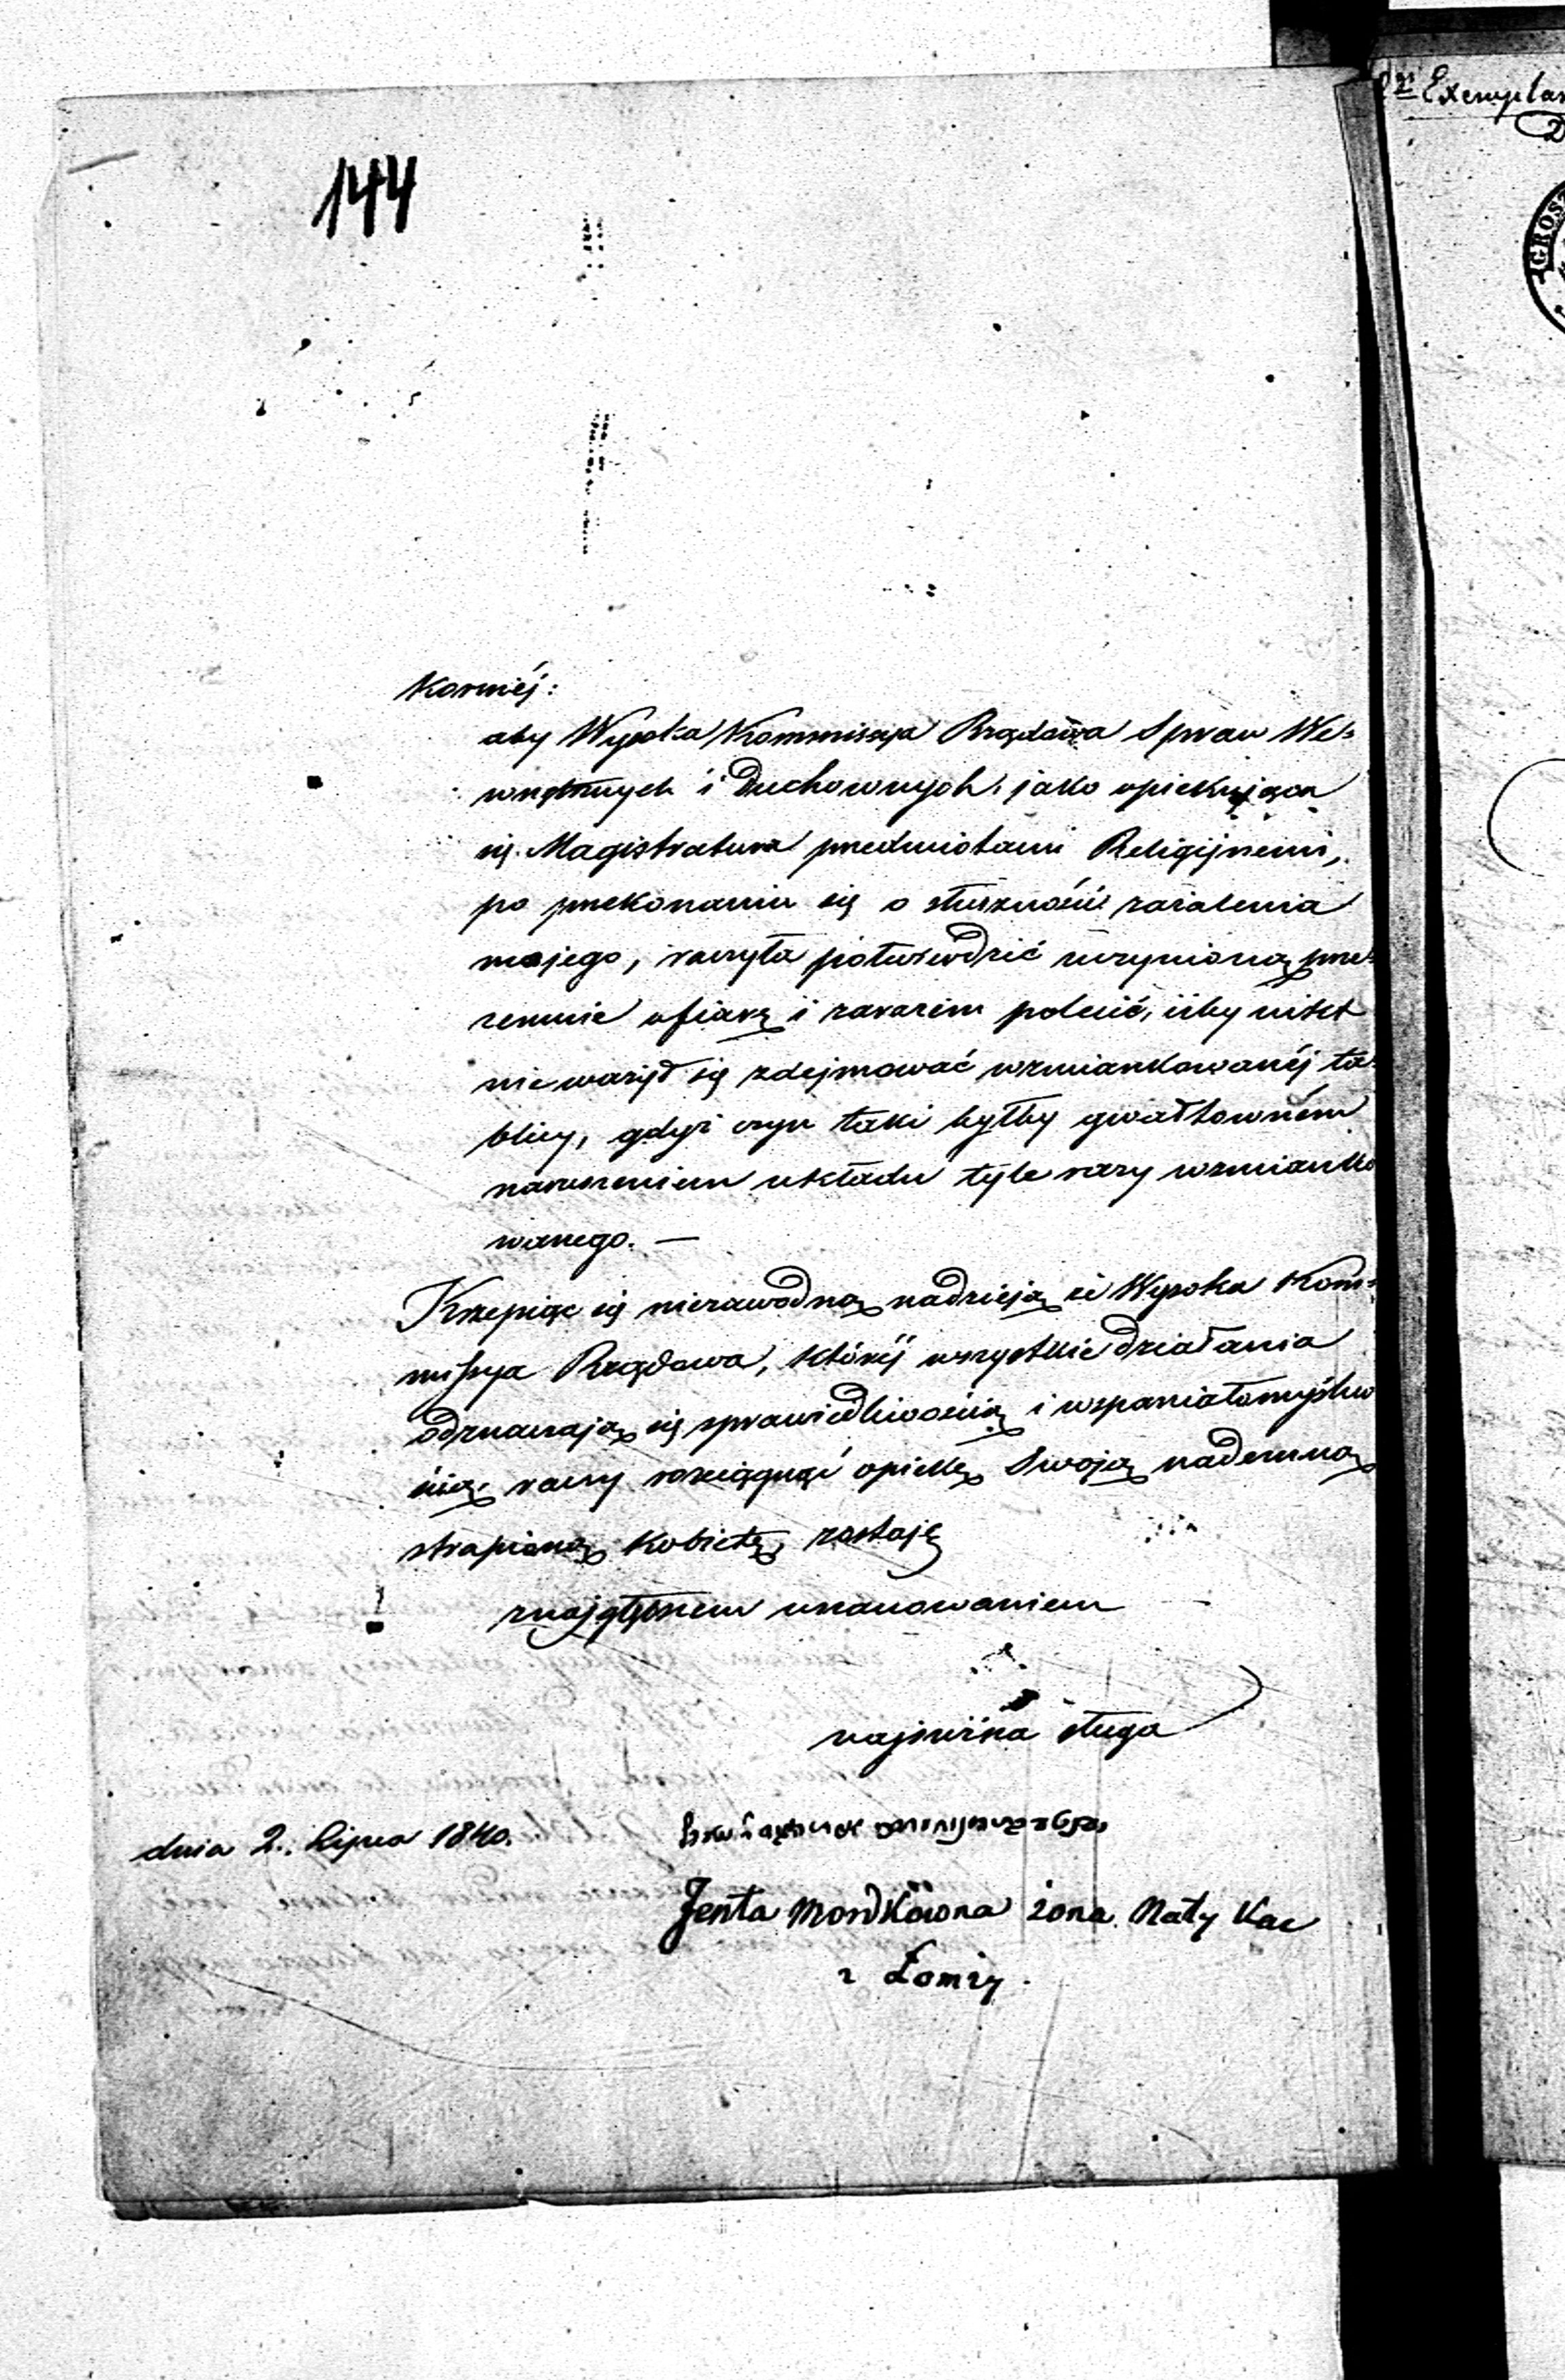 144
kornéj:
aby Wysoka Kommissya Rządowa Spraw We-
wnętrznych i Duchownych, jako opiekująca
się Magistratura przedmiotami Religijnemi,
po przekonaniu się o słuszności zażalenia
mojego, raczyła potwierdzić uczynioną prze-
zemnie ofiarę i zarazem polecić, iżby nikt
nie ważył się zdejmować wzmiankowanéj ta-
blicy, gdyż czyn taki byłby gwałtowném
naruszeniem układu tyle razy wzmianko
wanego. —
Krzepiąc się niezawodną nadzieją że Wysoka Kom-
missya Rządowa, któréj wszystkie działania
odznaczają się sprawiedliwością i wspaniałomyślno
ścią, raczy rosciągnąć opiekę Swoją nademną
strapioną kobietą, zostaję
z najgłębszem uszanowaniem
najniższa sługa
dnia 2. Lipca 1840.
Jenta Mordkówna żona Naty Kac
z Łomży.
Exemplar
GROSZ